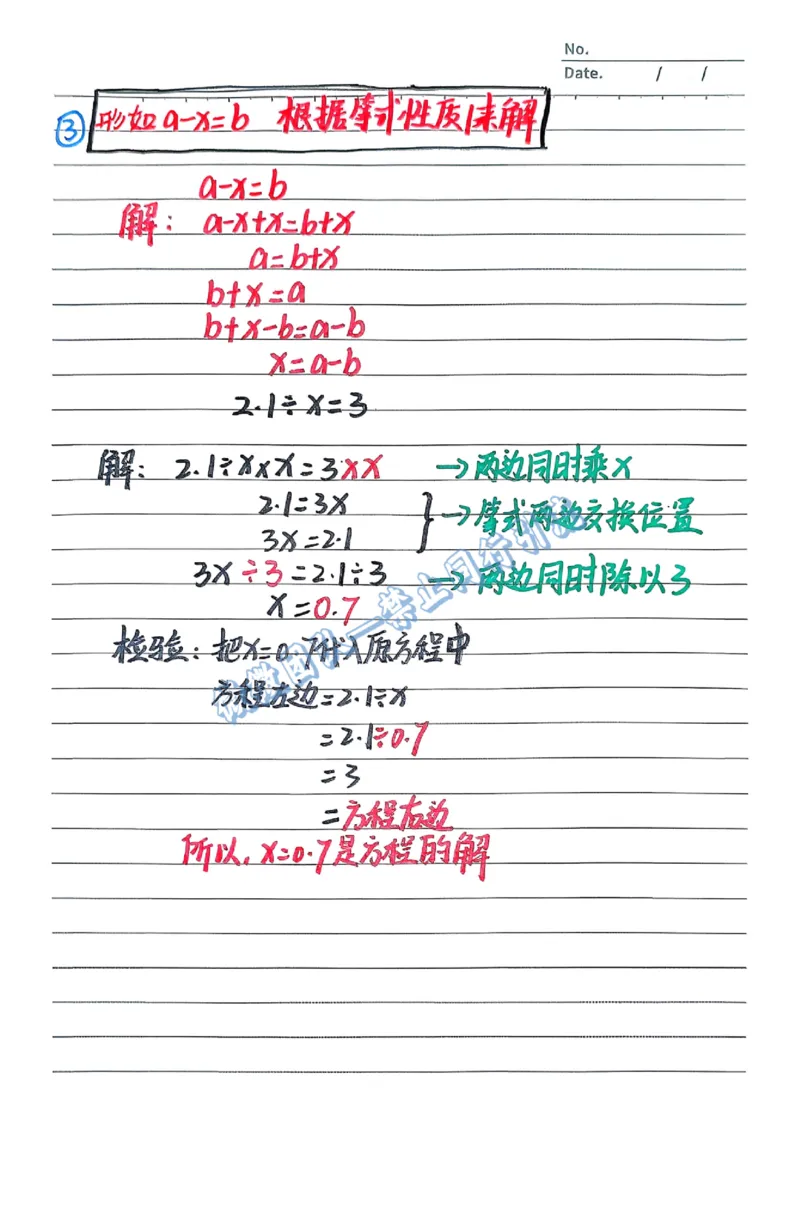 No.
Date. / /
③ 形如a-x=b 根据等式性质1来解
a-x=b
解: a-x+x=b+x
a=b+x
b+x=a
b+x-b=a-b
x=a-b
2.1÷x=3
解: 2.1÷x×x=3×x →两边同时乘x
2.1=3x
→等式两边交换位置
3x=2.1
3x÷3=2.1÷3 →两边同时除以3
x=0.7
检验: 把x=0.7代入原方程中
方程左边=2.1÷x
=2.1÷0.7
=3
=方程右边
所以, x=0.7是方程的解